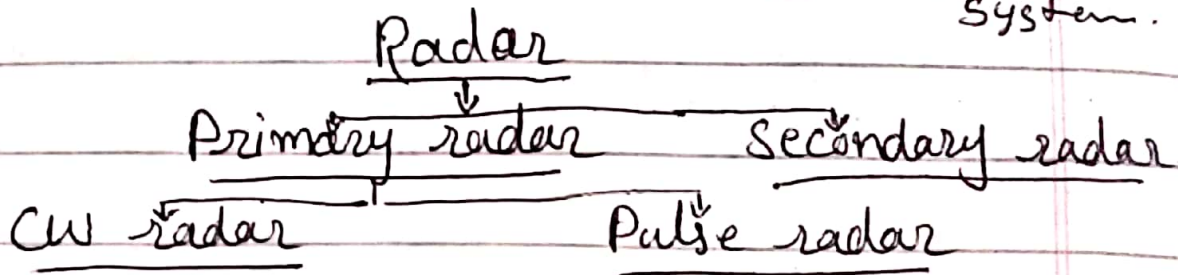 System.
Radar
Primary radar Secondary radar
CW radar Pulse radar